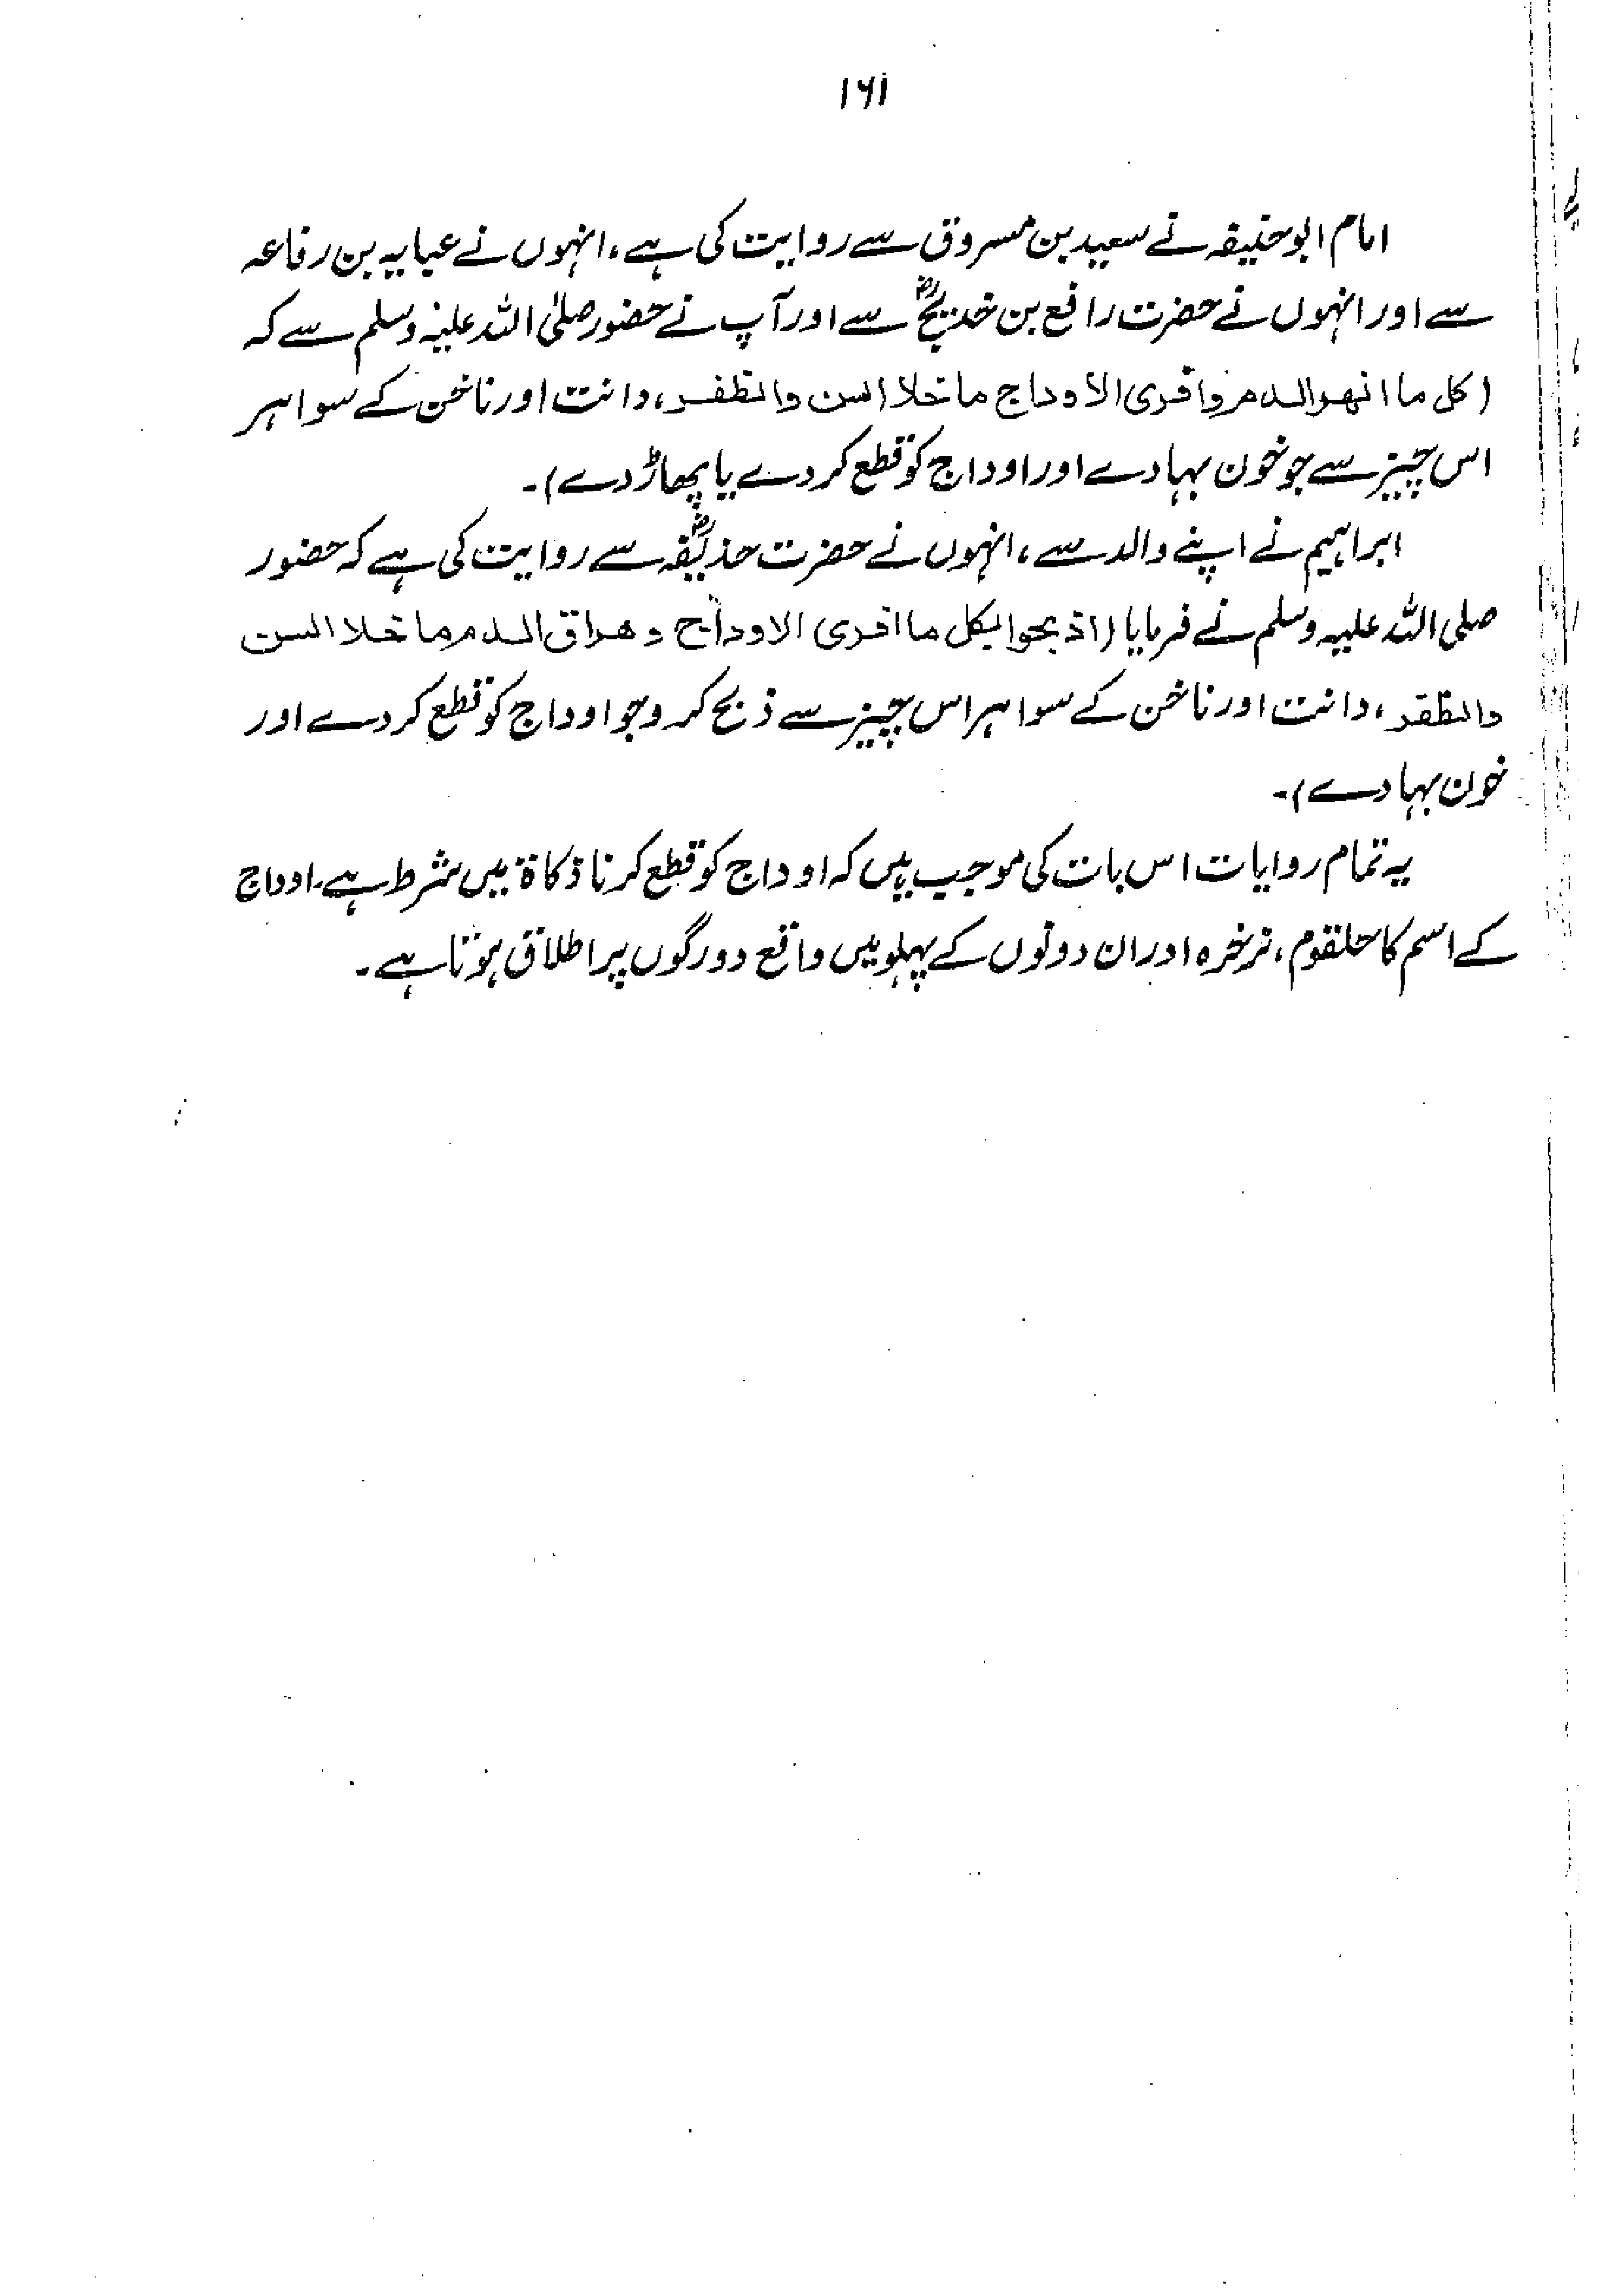 ۱۶۱
امام ابوحنیفہ نے سعید بن مسروق سے روایت کی ہے، انہوں نے عبایہ بن رفاعہ
سے اور انہوں نے حضرت رافع بن خدیجؓ سے اور آپ نے حضور صلی اللہ علیہ وسلم سے کہ
(کل ما انھر الدم وافری الاوداج ما خلا السن والظفر، دانت اور ناخن کے سوا ہر
اس چیز سے جو خون بہا دے اور اوداج کو قطع کر دے یا پھاڑ دے)۔
ابراہیم نے اپنے والد سے، انہوں نے حضرت حذیفہؓ سے روایت کی ہے کہ حضور
صلی اللہ علیہ وسلم نے فرمایا (اذبحوا بکل ما افری الاوداج وھراق الدم ما خلا السن
والظفر، دانت اور ناخن کے سوا ہر اس چیز سے ذبح کرو جو اوداج کو قطع کر دے اور
خون بہا دے)۔
یہ تمام روایات اس بات کی موجب ہیں کہ اوداج کو قطع کرنا ذکاۃ میں شرط ہے۔ اوداج
کے اسم کا حلقوم، نرخرہ اور ان دونوں کے پہلو میں واقع دو رگوں پر اطلاق ہوتا ہے۔